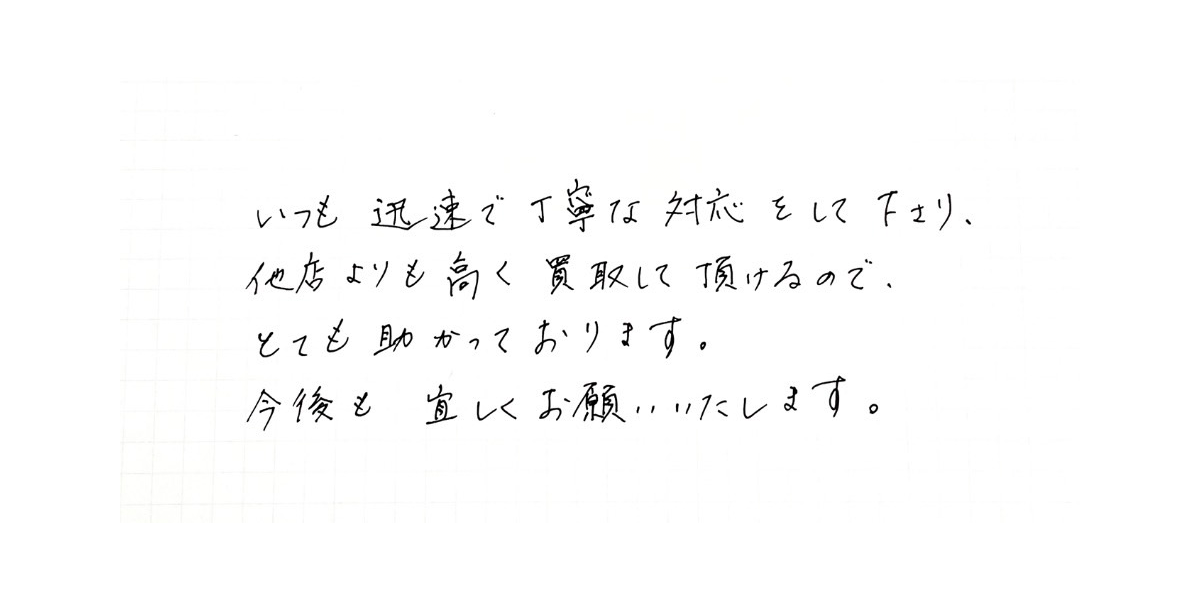 いつも迅速で丁寧な対応をして下さり、
他店よりも高く買取して頂けるので、
とても助かっております。
今後も宜しくお願いいたします。